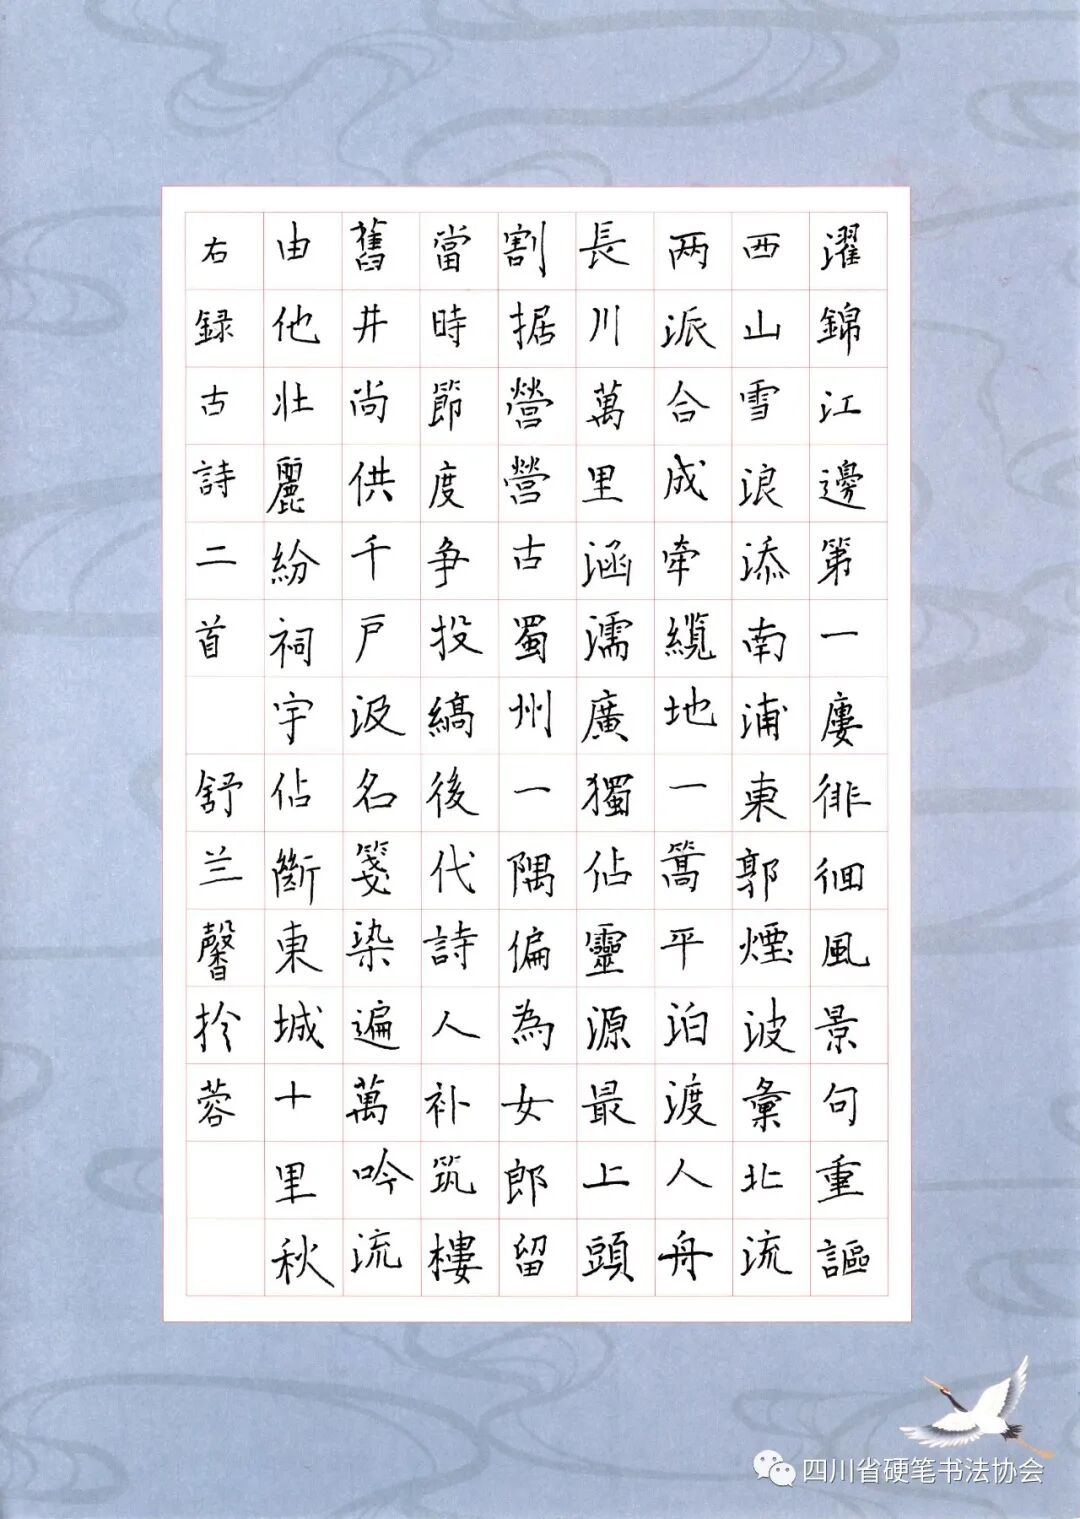 濯錦江邊第一廔徘徊風景句重謳
西山雪浪添南浦東郭煙波彙北流
两派合成牵纜地一篙平泊渡人舟
長川萬里涵濡廣獨佔靈源最上頭
割据營營古蜀州一隅偏為女郎留
當時節度争投縞後代詩人补筑樓
舊井尚供千戶汲名箋染遍萬吟流
由他壮麗紛祠宇佔斷東城十里秋
右録古詩二首 舒兰馨扵蓉
四川省硬笔书法协会